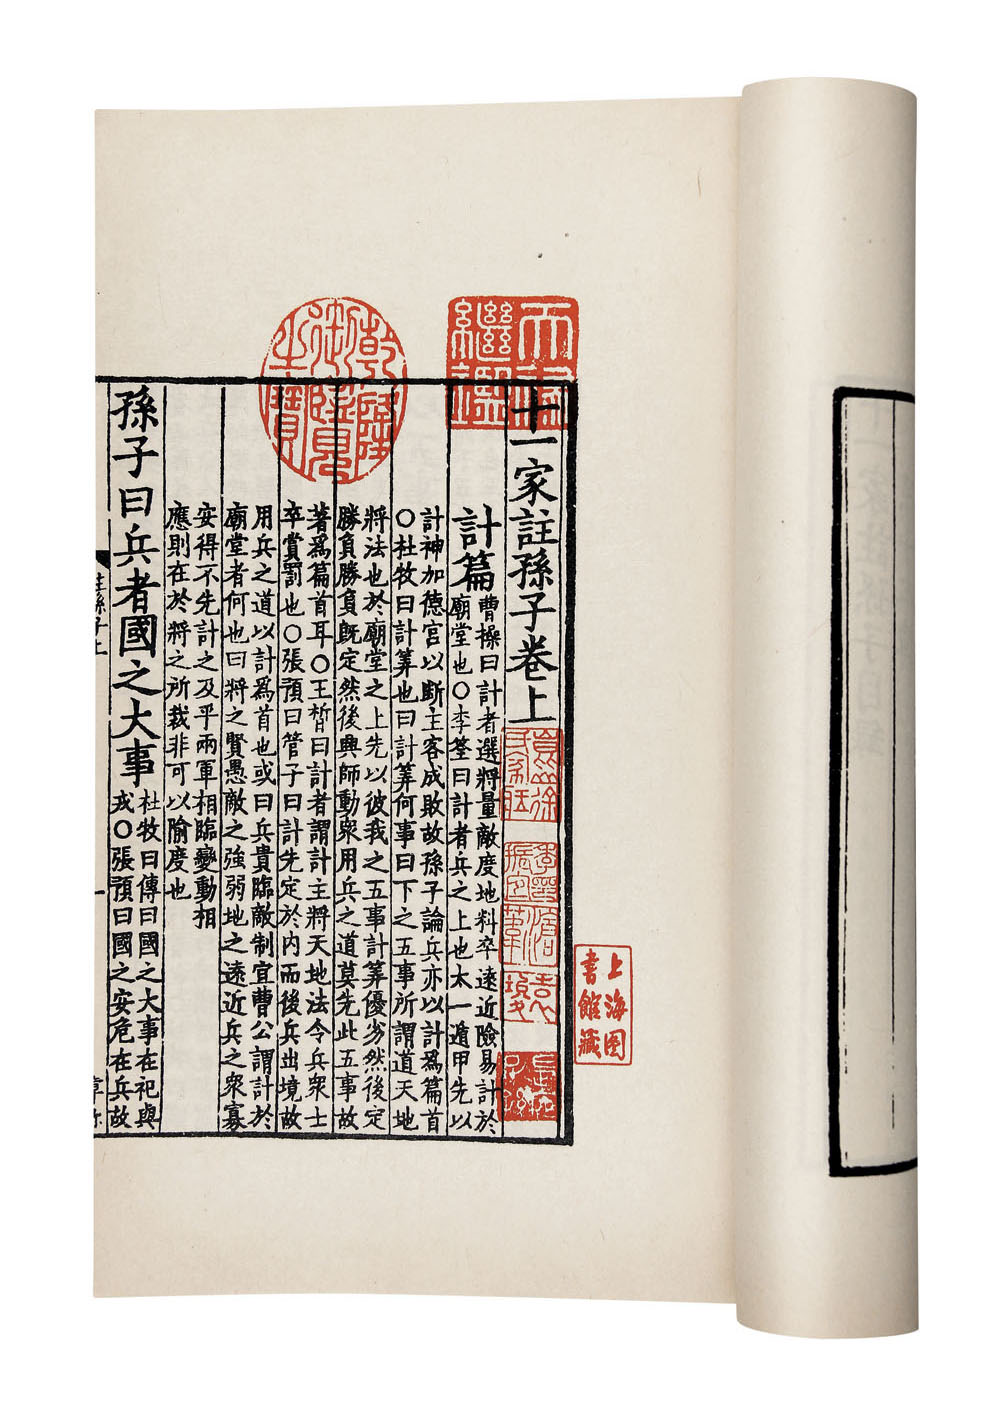 十一家註孫子卷上
計篇
曹操曰計者選將量敵度地料卒遠近險易計於
廟堂也○李筌曰計者兵之上也太一遁甲先以
計神加德宮以斷主客成敗故孫子論兵亦以計爲篇首
○杜牧曰計算也曰計算何事曰下之五事所謂道天地
將法也於廟堂之上先以彼我之五事計算優劣然後定
勝負勝負既定然後興師動衆用兵之道莫先此五事故
著爲篇首耳○王晳曰計者謂計主將天地法令兵衆士
卒賞罰也○張預曰管子曰計先定於內而後兵出境故
用兵之道以計爲首也或曰兵貴臨敵制宜曹公謂計於
廟堂者何也曰將之賢愚敵之強弱地之遠近兵之衆寡
安得不先計之及乎兩軍相臨變動相
應則在於將之所裁非可以隃度也
孫子曰兵者國之大事
杜牧曰傳曰國之大事在祀與
戎○張預曰國之安危在兵故
乾隆御覽之寶
天祿繼鑑
上海图
書館藏